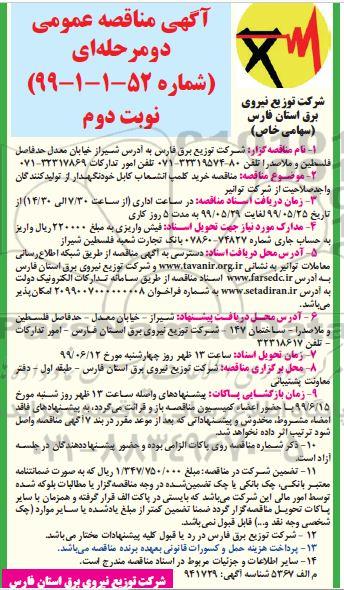 آگهی مناقصه عمومی
دومرحله‌ای
(شماره ۵۲-۱-۱-۹۹)
نوبت دوم
شرکت توزیع نیروی
برق استان فارس
(سهامی خاص)
۱- نام مناقصه‌گزار: شرکت توزیع برق فارس به آدرس شیراز خیابان معدل حدفاصل
فلسطین و ملاصدرا تلفن ۸۰-۳۳۳۱۹۵۷۴-۰۷۱ تلفن امور تدارکات ۳۲۳۱۷۸۶۹-۰۷۱
۲- موضوع مناقصه: مناقصه خرید کلمپ انشعاب کابل خودنگهدار از تولیدکنندگان
واجدصلاحیت از شرکت توانیر
۳- زمان دریافت اسناد مناقصه: در ساعت اداری (از ساعت ۷/۳۰ الی ۱۴/۳۰) از
تاریخ ۹۹/۰۵/۲۵ لغایت ۹۹/۰۵/۲۹ به مدت ۵ روز کاری
۴- مدارک مورد نیاز جهت تحویل اسناد: فیش واریزی به مبلغ ۲۲۰۰۰۰ ریال واریز
به حساب جاری شماره ۰۷۸۶۰۰۷۴۸۲۷ بانک تجارت شعبه فلسطین شیراز
۵- آدرس محل دریافت اسناد: دسترسی به آگهی مناقصه از طریق شبکه اطلاع‌رسانی
معاملات توانیر به نشانی www.tavanir.org.ir و شرکت توزیع نیروی برق استان فارس
به آدرس www.farsedc.ir اسناد مناقصه از طریق سامانه تدارکات الکترونیک دولت
به آدرس www.setadiran.ir به شماره فراخوان امکان‌پذیر
می‌باشد.
۶- آدرس محل دریافت پیشنهاد: شیراز - خیابان معدل - حدفاصل فلسطین
و ملاصدرا - ساختمان ۱۴۷ - شرکت توزیع نیروی برق استان فارس - امور تدارکات
- تلفن ۳۲۳۱۸۶۱۷
۷- زمان تحویل اسناد: ساعت ۱۳ ظهر روز چهارشنبه مورخ ۹۹/۰۶/۱۲
۸- محل برگزاری مناقصه: شرکت توزیع نیروی برق استان فارس - طبقه اول - دفتر
معاونت پشتیبانی
۹- زمان بازگشایی پاکات: پیشنهادهای واصله ساعت ۱۳ ظهر روز شنبه مورخ
۹۹/۶/۱۵ با حضور اعضاء کمیسیون مناقصه باز و قرائت می‌گردد، به پیشنهادهای فاقد
امضاء، مشروط، مخدوش و پیشنهاداتی که بعد از موعد مقرر در بند ۷ آگهی مناقصه واصل
شود ترتیب اثر داده نخواهد شد.
۱۰- ذکر شماره مناقصه روی پاکات الزامی بوده و حضور پیشنهاددهندگان در جلسه
آزاد است.
۱۱- تضمین شرکت در مناقصه: مبلغ ۱/۳۴۷/۷۵۰/۰۰۰ ریال که به صورت ضمانتنامه
معتبر بانکی، چک بانکی یا چک تضمین‌شده در وجه مناقصه‌گزار یا مطالبات بلوکه شده
توسط امور مالی این شرکت می‌باشد که بایستی در پاکت الف قرار گرفته و همزمان با سایر
پاکات تحویل مناقصه‌گزار گردد ضمنا تضمین کمتر از مبلغ یادشده یا سایر موارد (چک
شخصی وجه نقد و...) قابل قبول نمی‌باشد.
۱۲- شرکت توزیع برق فارس در رد یا قبول کلیه پیشنهادات مختار می‌باشد.
۱۳- پرداخت هزینه حمل و کسورات قانونی بعهده برنده مناقصه می‌باشد.
۱۴- سایر اطلاعات و جزئیات مربوط در اسناد مناقصه مندرج است.
م الف ۵۳۶۷ شناسه آگهی: ۹۴۱۷۳۹
شرکت توزیع نیروی برق استان فارس